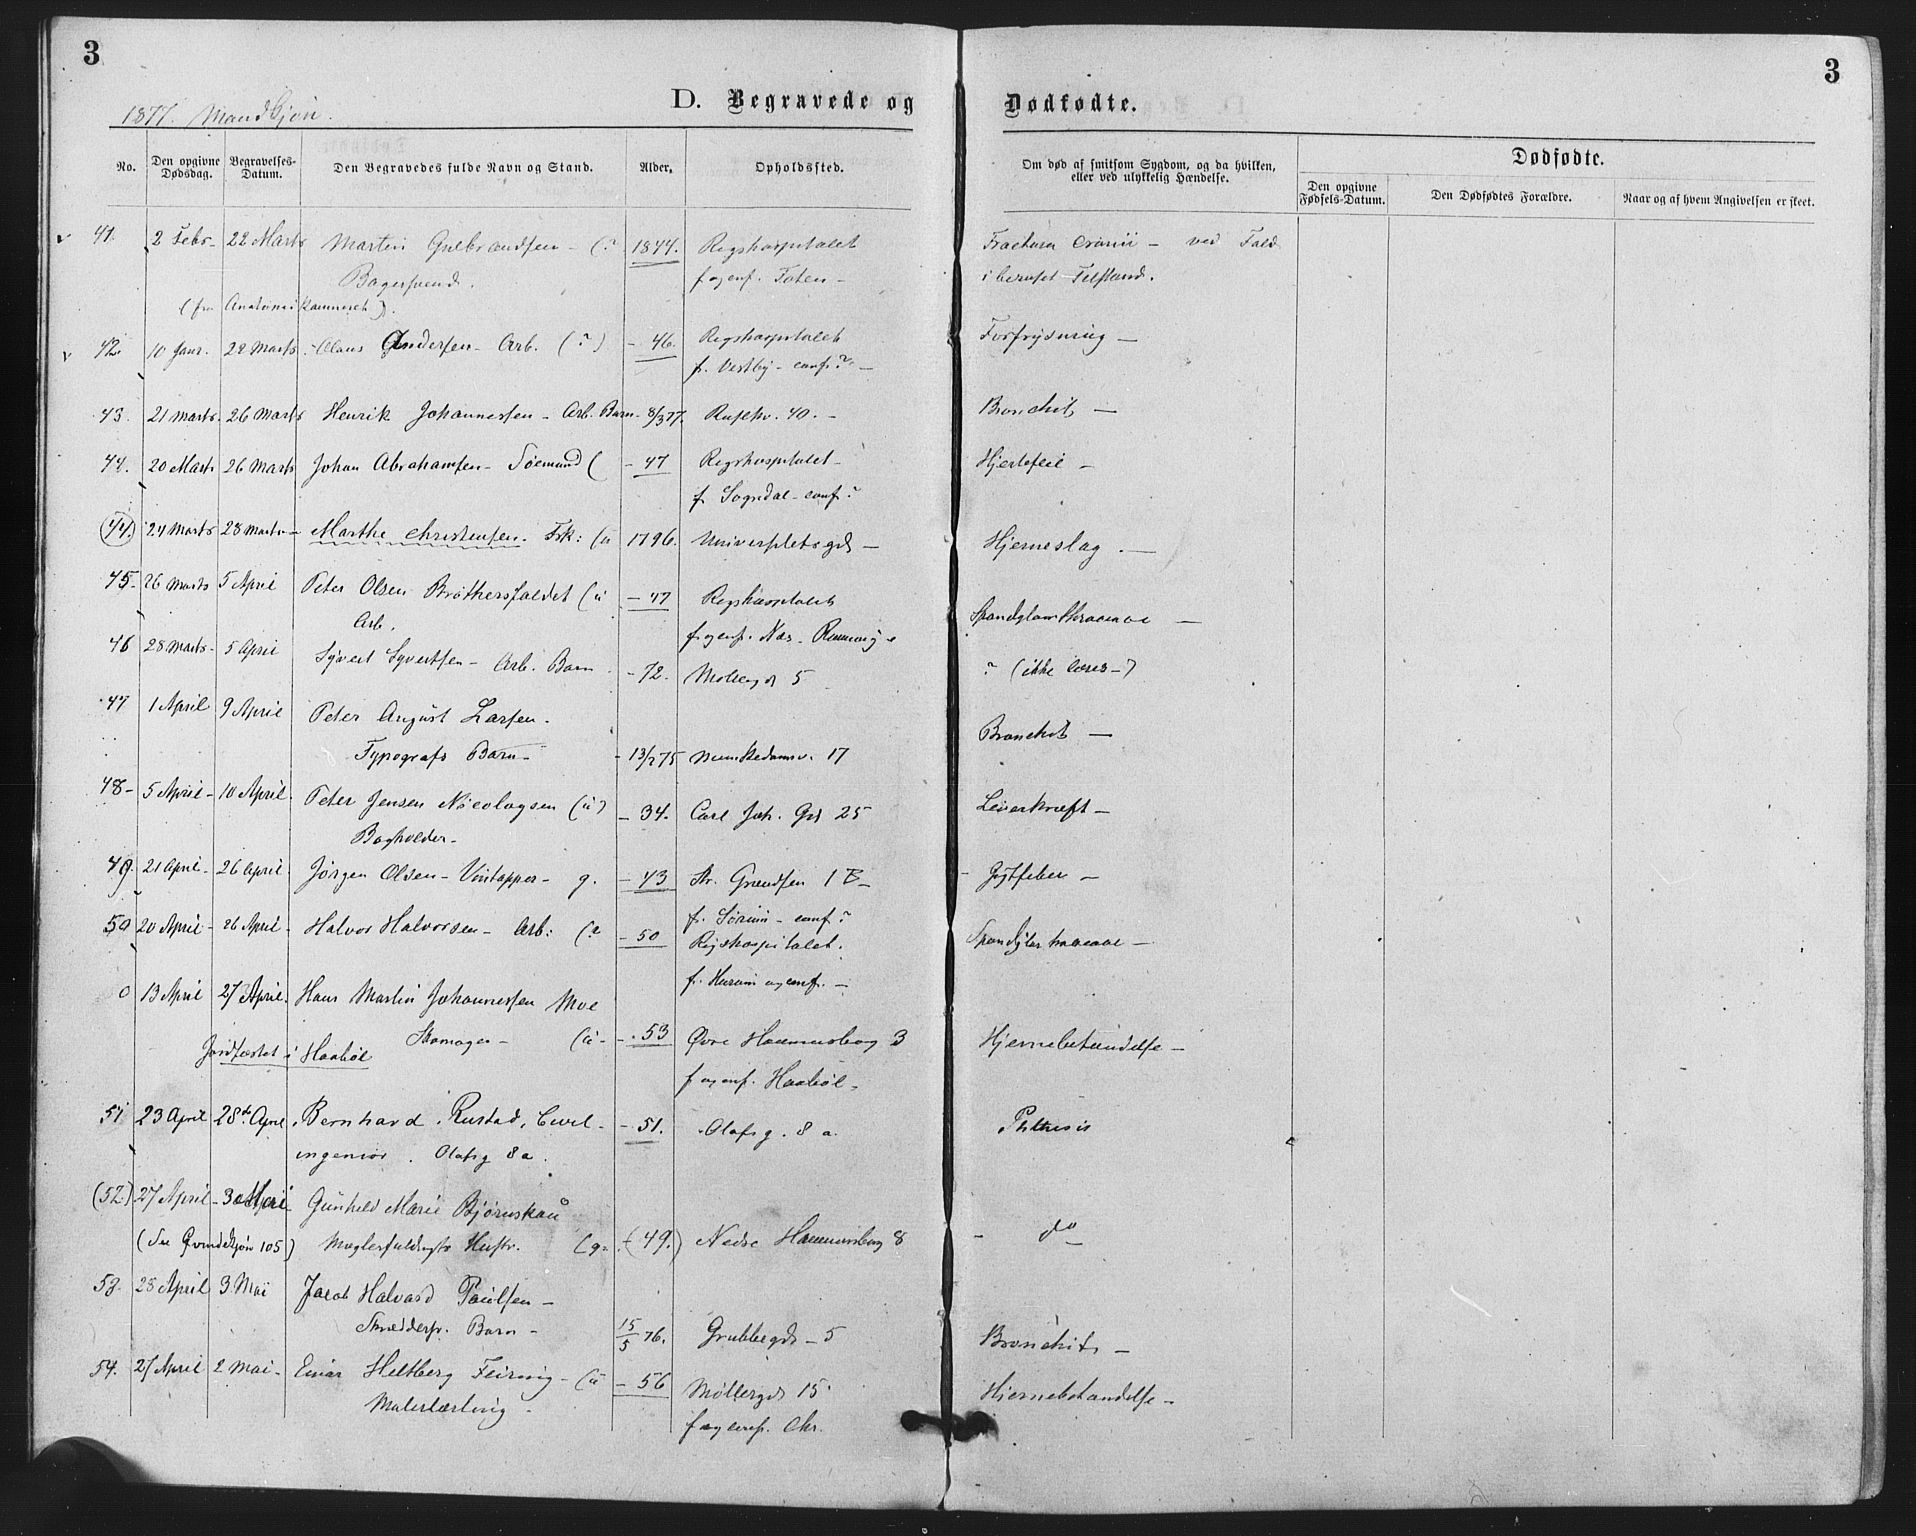 3
3
1877. Mandkjøn.
D. Begravede og Dødfødte.
No. Den opgivne Dødsdag. Begravelses-Datum. Den Begravedes fulde Navn og Stand. Alder. Opholdssted. Om død af smitsom Sygdom, og da hvilken, eller ved ulykkelig Hændelse. Dødfødte.
Den opgivne Fødsels-Datum. Den Dødfødtes Forældre. Naar og af hvem Angivelsen er skeet.
41. 2 Febr. 22 Marts Martin Gulbrandsen - (? 1844. Rigshospitalet Fractura cranii - ved Fald
Bagersvend. f og conf. Toten - i beruset Tilstand.
(fra Anatomikammeret).
42. 10 Janr. 22 Marts Olaus Andersen - Arb. (?) - 46. Rigshospitalet Forfrysning -
f. Vestby - conf? -
43. 21 Marts. 26 Marts Henrik Johannessen - Arb. Barn - 8/3 77. Rusekv. 40. - Bronchit -
44. 20 Marts 26 Marts Johan Abrahamsen - Søemand ( - 47 Rigshospitalet - Hjertefeil -
f. Sogndal - conf?
(44.) 24 Marts 28 Marts - Marthe Christensen. Fsk: (u 1796. Universitetsgd - Hjerneslag. -
45 - 26 Marts 5 April Peter Olsen (u - 47 Rigshospitalet
Arb. f. og conf. Næs - Romerige
46 28 Marts - 5 April Syvert Syvertsen - Arb. Barn - 72. Mollergd 5 ? (ikke læres -)
47 1 April 9 April Peter August Larsen. Bronchit -
Typografs Barn - - 13/2 75 Munkedamsv. 17
48 - 5 April - 10 April. Peter Jensen Nicolaysen (u) - 34. Carl Joh. Gd 25 Leverkræft -
Bogholder -
49. 21 April - 26 April. Jørgen Olsen - Vintapper - g. - 43 Str. Grændsen 1 B - Gigtfeber -
f. Sørum - conf?
50 20 April - 26 April - Halvor Halvorsen - Arb: (? - 50 Rigshospitalet.
f. Hurum og conf. -
0 13 April 27 April. Hans Martin Johannessen Moe
Jordfæstet i Haabøl Skomager - (u - - 53 Øvre Hammersborg 3 Hjernebetændelse -
f og conf. Haabøl -
51 23 April 28de April. Bernhard Rustad, Civil - - 51. Olafsg. 8 a. Phthisis
ingeniør. Olafsg 8a.
(52) 27 April - 3 Mai Gunhild Marie Bjørnskau
(See Qvindekjøn 105) Mæglerfuldmgts Hustr. (g. - (49.) Nedre Hammersborg 8 - do -
53. 28 April 3. Mai Jacob Halvard Paulsen -
Skrædersv. Barn - 15/5 76. Grubbegd - 5 Bronchit -
54. 27 April 2 Mai - Einar Heltberg Feiring - (u - 56 Møllergd 15 Hjernebetændelse -
Malerlærling - f og conf. Chr.